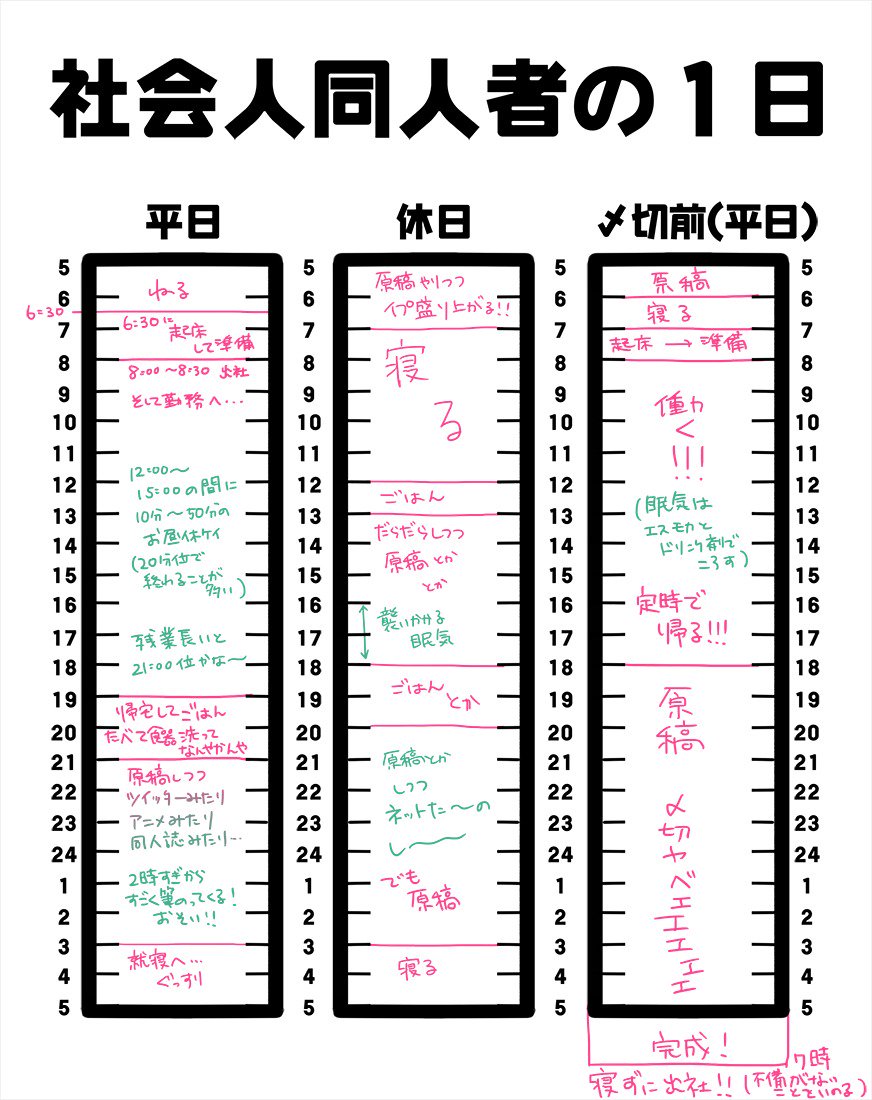 社会人同人者の1日
平日
5
6
7
8
9
10
11
12
13
14
15
16
17
18
19
20
21
22
23
24
1
2
3
4
5
6:30
ねる
6:30に
起床
して準備
8:00〜8:30 出社
そして勤務へ…
12:00〜
15:00の間に
10分〜50分の
お昼休ケイ
(20分位で
終わることが
多い)
残業長いと
21:00位かな〜
帰宅してごはん
たべて食器洗って
なんやかんや
原稿しつつ
ツイッターみたり
アニメみたり
同人誌みたり…
2時すぎから
すごく筆のってくる!
おそい!!
就寝へ…
ぐっすり
休日
5
6
7
8
9
10
11
12
13
14
15
16
17
18
19
20
21
22
23
24
1
2
3
4
5
原稿やりつつ
イプ盛り上がる!!
寝
る
ごはん
だらだらしつつ
原稿とか
とか
襲いかかる
眠気
ごはん
とか
原稿とか
しつつ
ネットた〜の
し〜〜
でも
原稿
寝る
〆切前(平日)
5
6
7
8
9
10
11
12
13
14
15
16
17
18
19
20
21
22
23
24
1
2
3
4
5
原稿
寝る
起床→準備
働か
く
!!!
(眠気は
エスモカと
ドリンク剤で
ころす)
定時で
帰る!!!
原
稿
〆
切
ヤ
ベ
エ
エ
エ
エ
エ
5
6
7
8
9
10
11
12
13
14
15
16
17
18
19
20
21
22
23
24
1
2
3
4
5
完成!
7時
寝ずに出社!!(不備がない
ことをいのる)